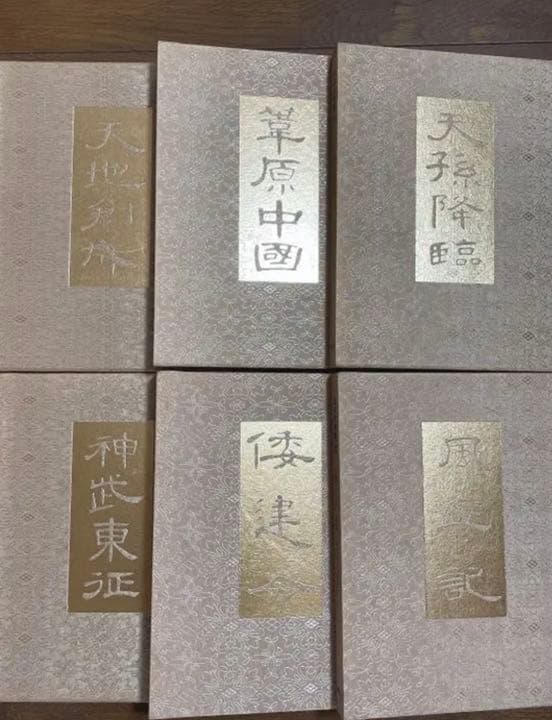 天地創成
葦原中國
天孫降臨
神武東征
倭建命
風土記